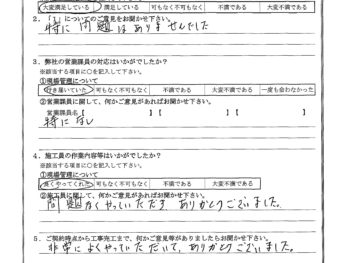 大変満足している 満足している 可もなく不可もなく 不満である 大変不満である
2.「1」についてのご意見をお聞かせ下さい。
特に問題はありませんでした
3．弊社の営業課員の対応はいかがでしたか？
※該当する項目に○を記入して下さい。
①現場管理について
行き届いていた 可もなく不可もなく 不満である 大変不満である 一度も会わなかった
②営業課員に関して、何かご意見があればお聞かせ下さい。
営業課員名【 】【 】【 】
特になし
4．施工員の作業内容等はいかがでしたか？
※該当する項目に○を記入して下さい。
①現場管理について
良くやってくれた 可もなく不可もなく 不満である 大変不満である
②施工員に関して、何かご意見があればお聞かせ下さい。
問題なくやっていただき、ありがとうございました。
5．ご契約時点から工事完工まで、何かご意見等がありましたらお聞かせ下さい。
非常によくやっていただいて、ありがとうございました。